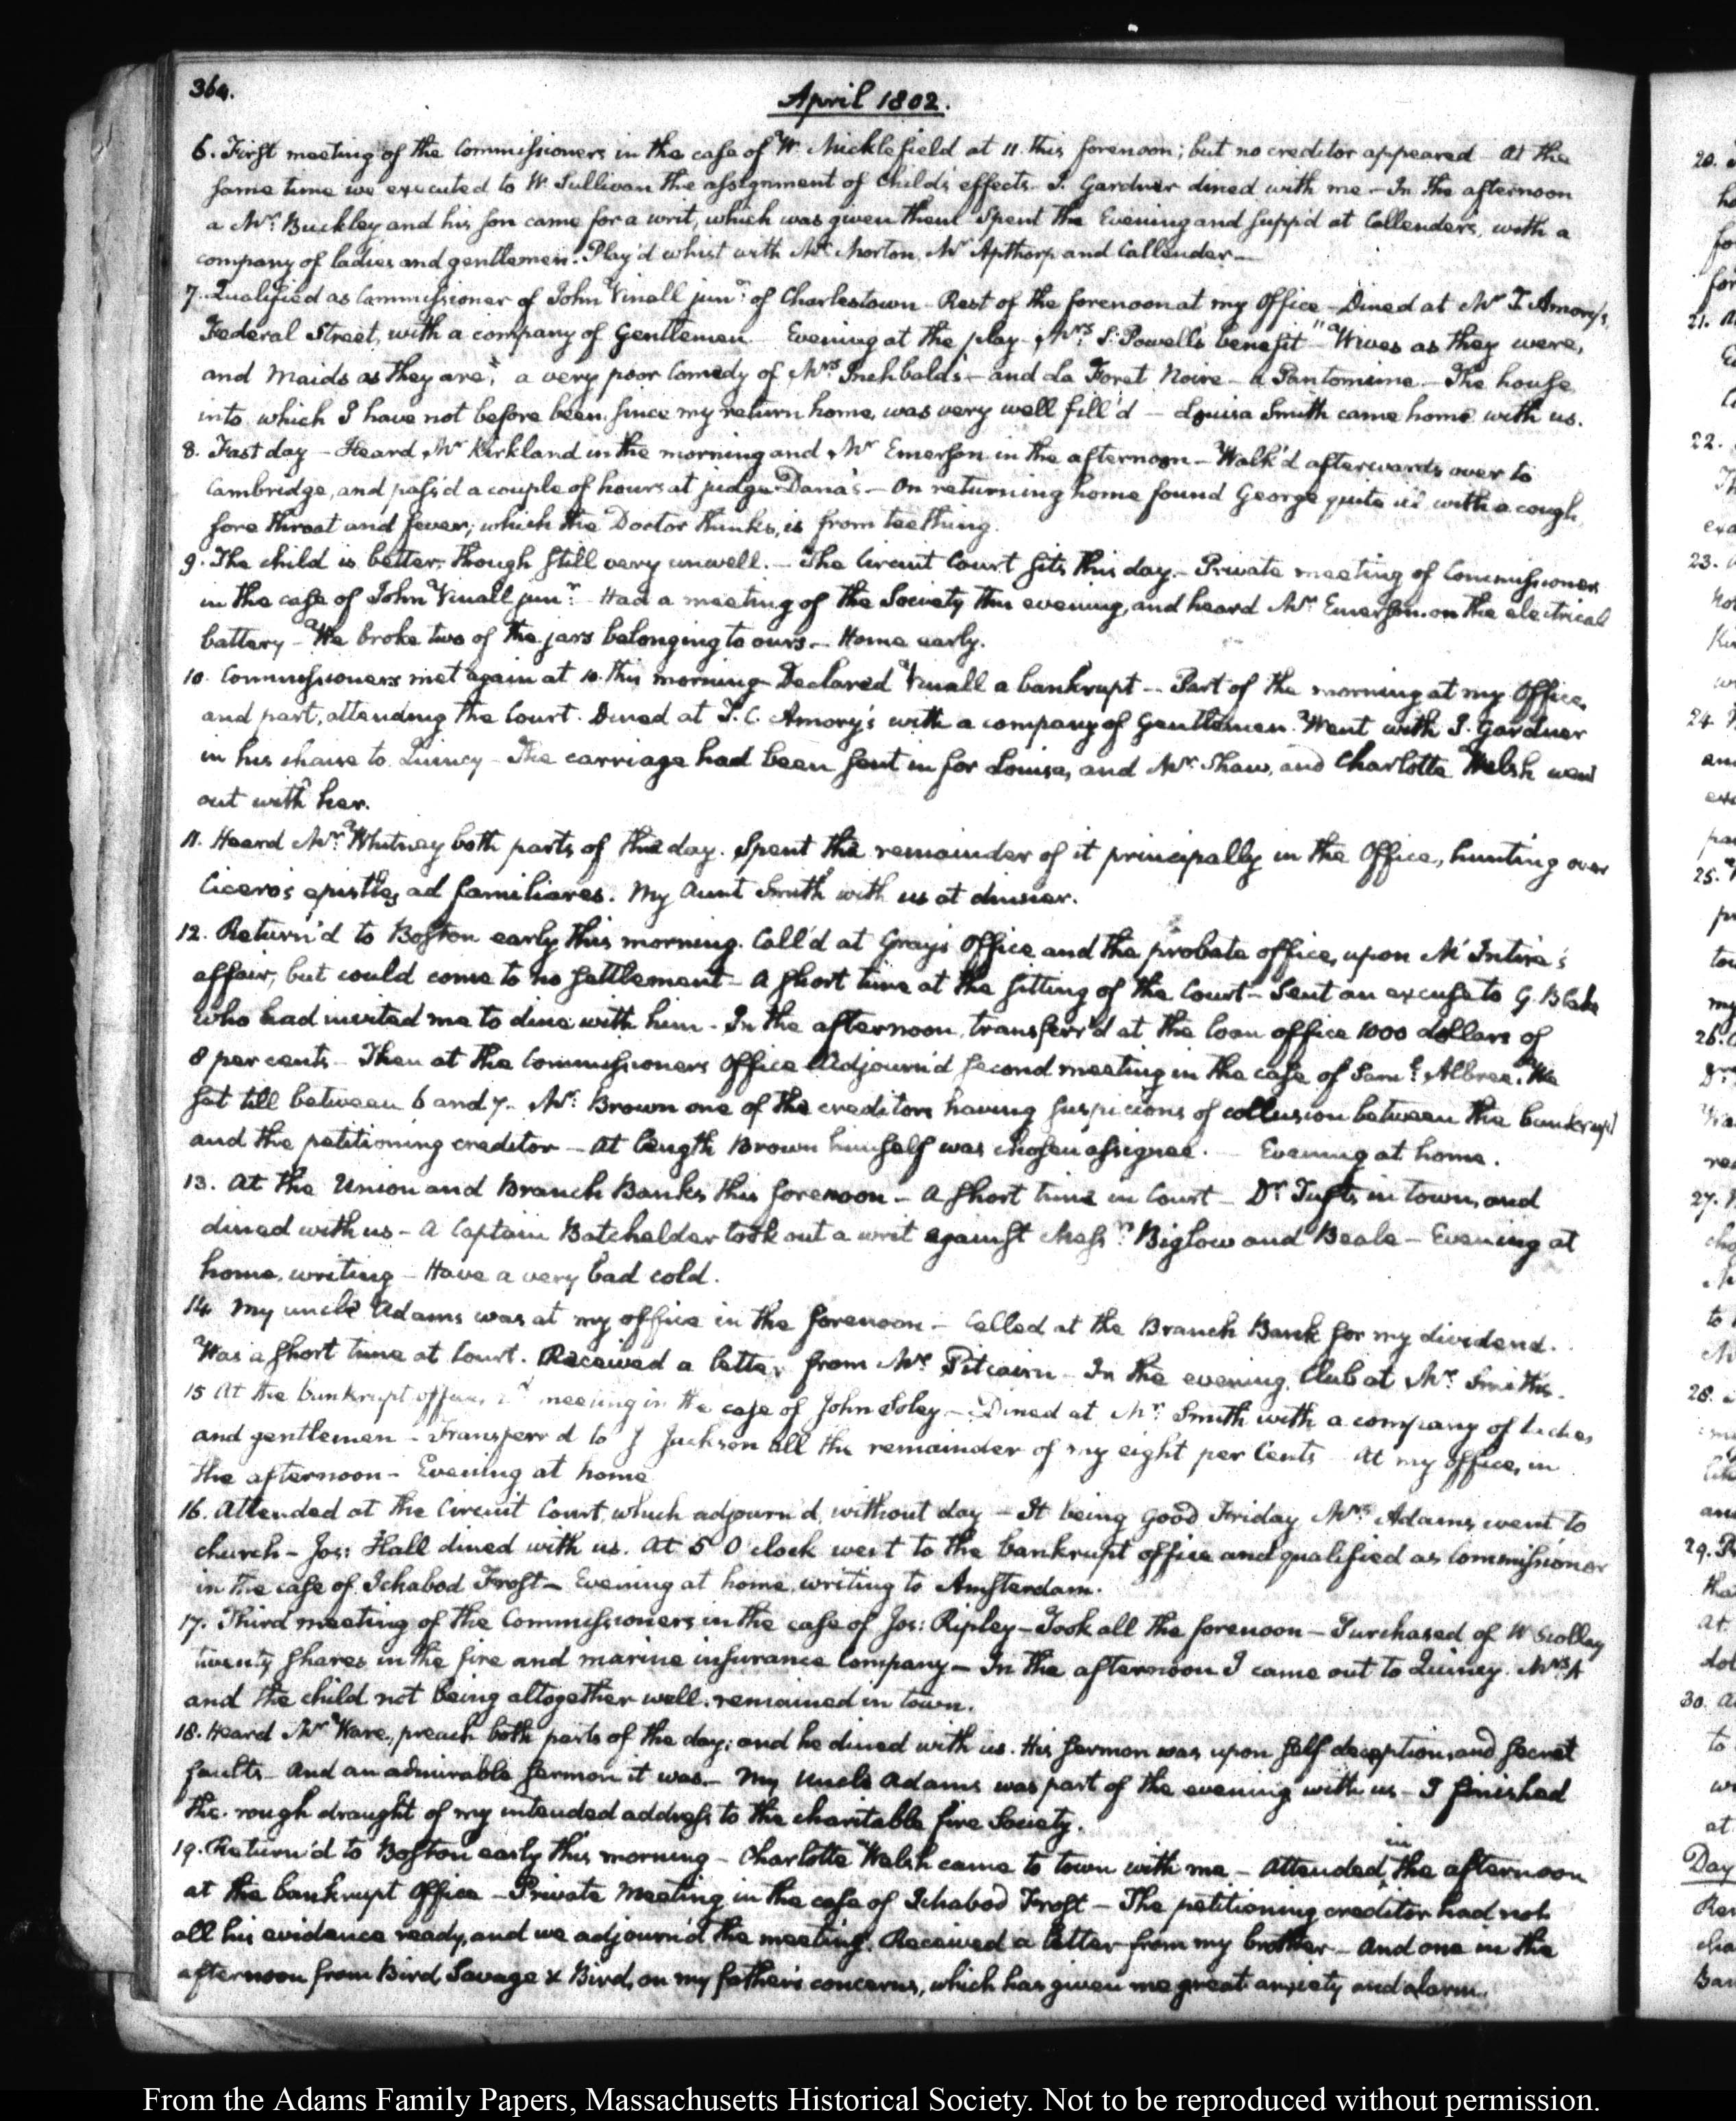 364.
April 1802.
6. First meeting of the Commissioners in the case of W. Micklefield at 11 this forenoon; but no creditor appeared — At the
same time we executed to W. Sullivan the assignment of Child's effects. J. Gardner dined with me — In the afternoon
a Mr: Buckley and his son came for a writ, which was given them. Spent the Evening and supp'd at Callender's, with a
company of ladies and gentlemen. Play'd whist with Mr. Morton, Mr Apthorp and Callender —
7. Qualified as Commissioner of John Vinall junr: of Charlestown — Rest of the forenoon at my Office — Dined at Mr T. Amory's
Federal Street, with a company of Gentlemen — Evening at the play — Mrs: S. Powell's benefit — "Wives as they were,
and Maids as they are", a very poor Comedy of Mrs Inchbald's — and La Foret Noire — a Pantomime — The house,
into which I have not before been, since my return home, was very well fill'd — Louisa Smith came home with us.
8. Fast day — Heard Mr Kirkland in the morning and Mr Emerson in the afternoon — Walk'd afterwards over to
Cambridge, and pass'd a couple of hours at judge Dana's — On returning home found George quite ill with a cough,
sore throat and fever; which the Doctor thinks, is from teething.
9. The child is better, though still very unwell. — The Circuit Court sits this day. — Private meeting of Commissioners
in the case of John Vinall junr: — Had a meeting of the Society this evening, and heard Mr: Emerson on the electrical
battery — We broke two of the jars belonging to ours. — Home early.
10. Commissioners met again at 10 this morning — Declared Vinall a bankrupt — Part of the morning at my Office,
and part, attending the Court. Dined at T. C. Amory's with a company of Gentlemen. Went with J. Gardner
in his chaise to Quincy — The carriage had been sent in for Louisa, and Mr: Shaw, and Charlotte Welsh went
out with her.
11. Heard Mr: Whitney both parts of the day. Spent the remainder of it principally in the Office, hunting over
Cicero's epistles ad familiares. My Aunt Smith with us at dinner.
12. Return'd to Boston early this morning. Call'd at Gray's Office and the probate office, upon M'Intire's
affair, but could come to no settlement — A short time at the sitting of the Court — Sent an excuse to G. Blake
who had invited me to dine with him — In the afternoon, transferr'd at the loan office 1000 dollars of
8 per cents — Then at the Commissioners Office Adjourn'd second meeting in the case of Saml: Albree. We
sat till between 6 and 7. Mr: Brown one of the creditors having suspicions of collusion between the bankrupt
and the petitioning creditor — At length Brown himself was chosen assignee. — Evening at home.
13. At the Union and Branch Banks this forenoon — A short time in Court — Dr Tufts in town, and
dined with us — A Captain Batchelder took out a writ against Messrs: Biglow and Beale — Evening at
home, writing — Have a very bad cold.
14 My uncle Adams was at my office in the forenoon — Called at the Branch Bank for my dividend.
Was a short time at Court. Received a letter from Mr: Pitcairn — In the evening, Club at Mr: Smith's.
15 At the bankrupt office, 2d meeting in the case of John Soley — Dined at Mr: Smith with a company of ladies
and gentlemen — Transferr'd to J Jackson all the remainder of my eight per Cents — At my Office, in
the afternoon — Evening at home
16. Attended at the Circuit Court, which adjourn'd, without day — It being Good Friday Mrs: Adams, went to
church — Jos: Hall dined with us. At 5 O clock went to the bankrupt office and qualified as Commissioner
in the case of Ichabod Frost — Evening at home, writing to Amsterdam.
17. Third meeting of the Commissioners in the case of Jos: Ripley — Took all the forenoon — Purchased of W Scollay
twenty shares in the fire and marine insurance Company — In the afternoon I came out to Quincy. Mrs A
and the child not being altogether well, remained in town.
18. Heard Mr Ware, preach both parts of the day; and he dined with us. His sermon was upon self deception, and secret
faults — And an admirable sermon it was. — My Uncle Adams was part of the evening with us — I finished
the rough draught of my intended address to the charitable fire Society.
19. Return'd to Boston early this morning — Charlotte Welsh came to town with me — Attended in the afternoon
at the bankrupt Office — Private Meeting in the case of Ichabod Frost — The petitioning creditor had not
all his evidence ready, and we adjourn'd the meeting. Received a letter from my brother — And one in the
afternoon from Bird, Savage & Bird, on my father's concerns, which has given me great anxiety and alarm.
From the Adams Family Papers, Massachusetts Historical Society. Not to be reproduced without permission.